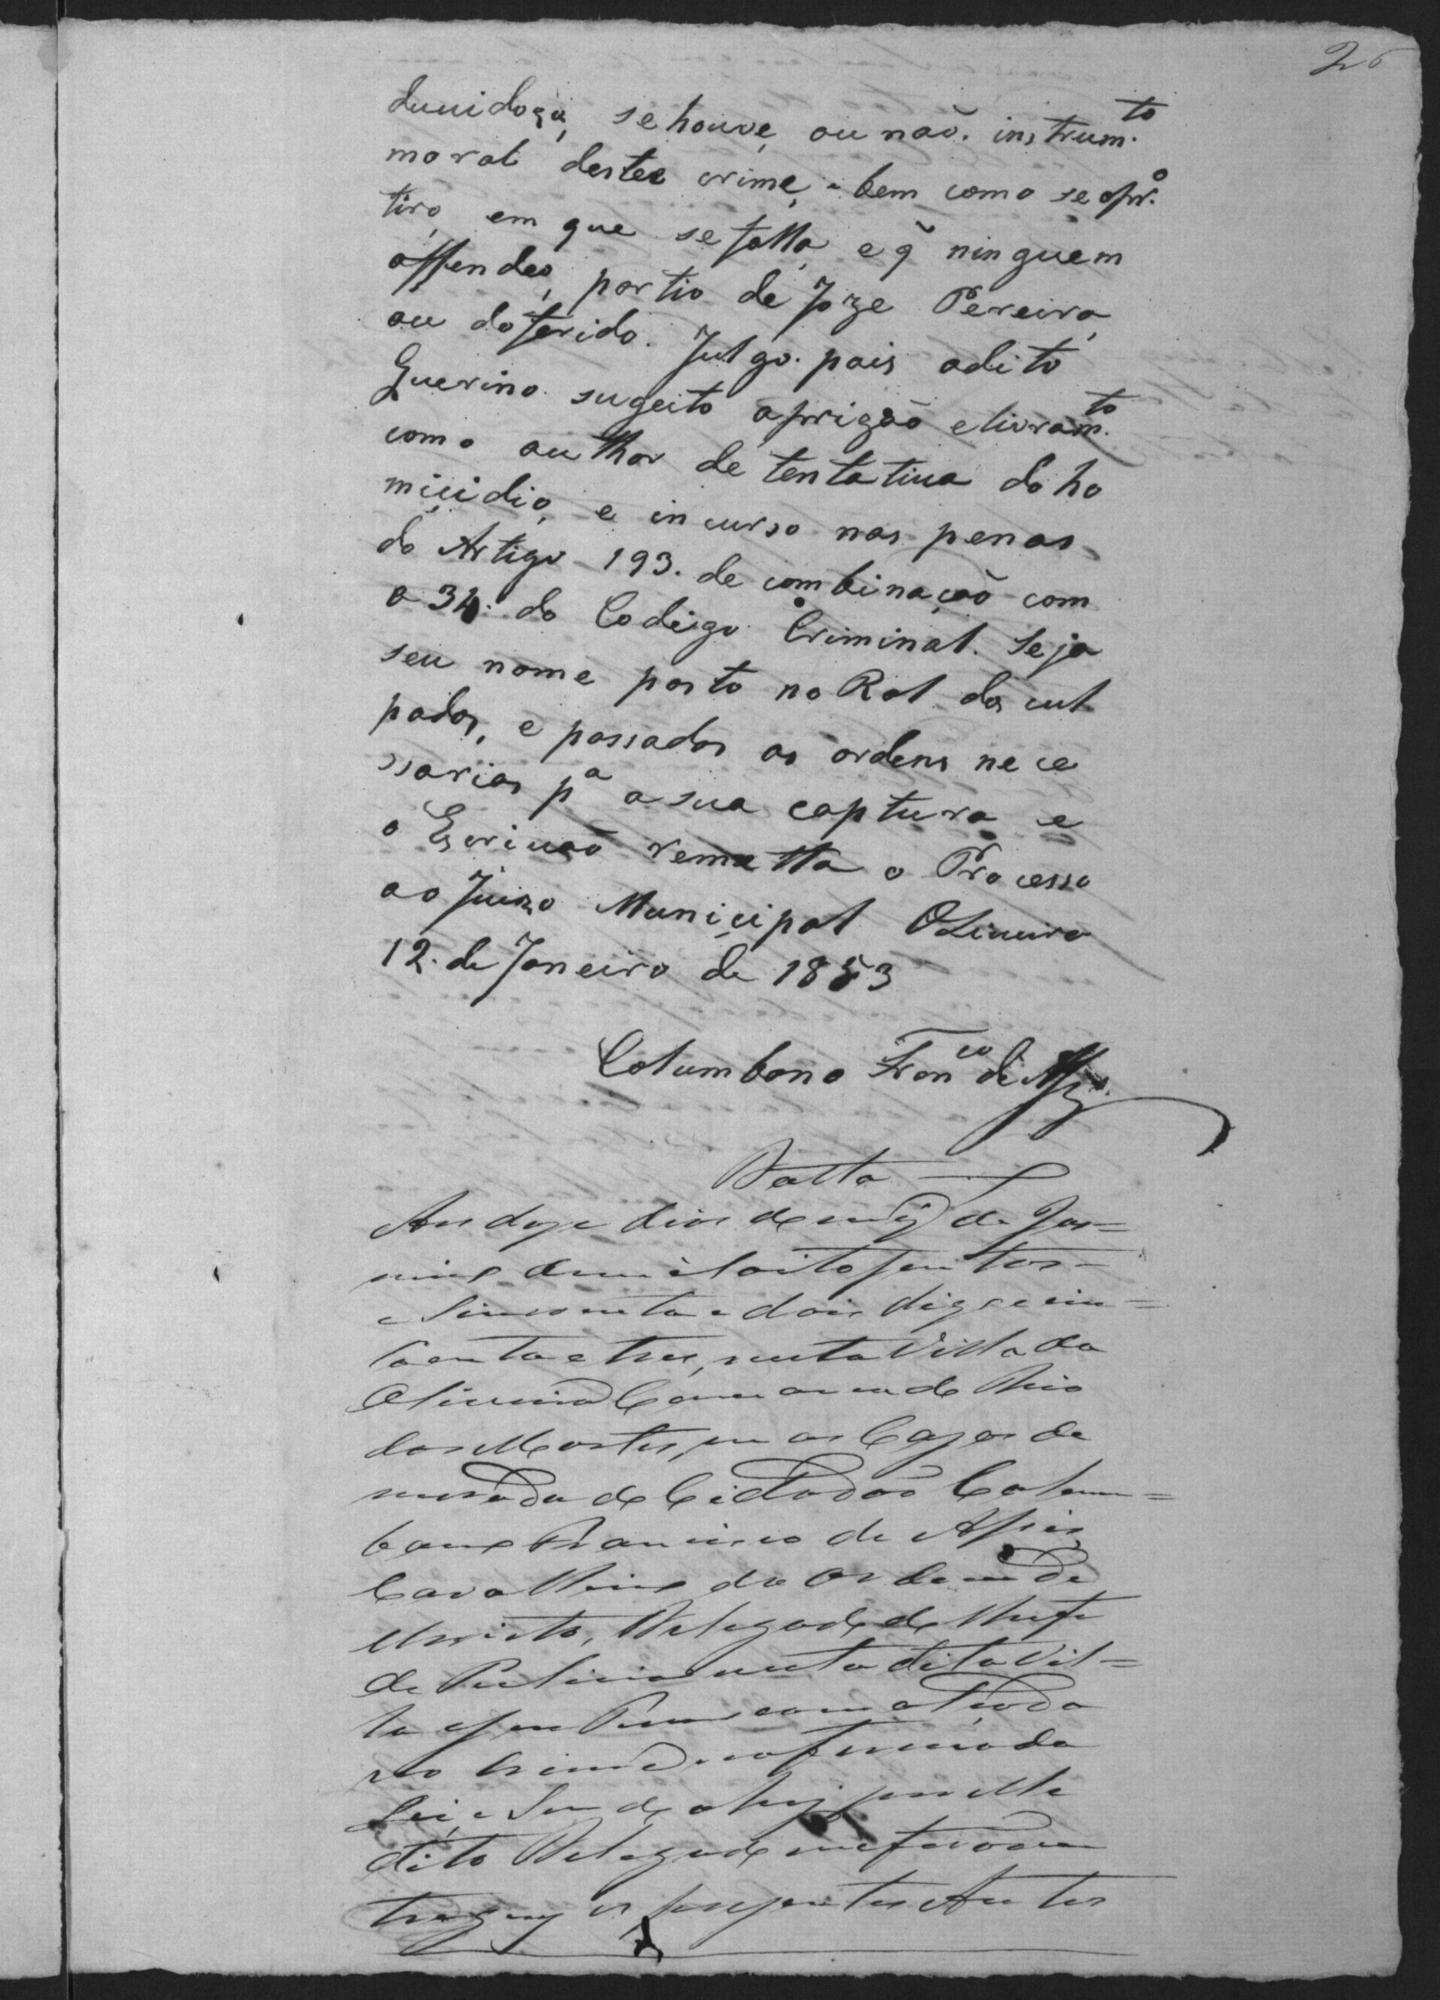 26
duvidoza, se houve, ou naõ. instrum.to
moral deste crime, bem como se o pr.o
tiro, em que se falla, e q̃ ninguem
offendeo, partio de Joze Pereira,
ou do ferido. Julgo. pois o dito
Guerino sugeito a prizão e livram.to
como author de tentativa do ho
micidio, e incurso nas penas
do Artigo 193. de combinação com
o 34. do Codigo Criminal. Seja
seu nome posto no Rol dos cul
pados, e passadas as ordens nece
ssarias p.a a sua captura e
o Escrivaõ remetta o Processo
ao Juizo Municipal Oliveira
12. de Janeiro de 1853
Columbano Fran.co de Assis
Datta
Aos doze dias do mez de Ja=
neiro de mil oito sentos
e sincoenta e dois digo e cin=
coenta e tres, nesta Villa da
Oliveira Comarca do Rio
das Mortes, em as Cazas de
morada do Cidadão Colum=
bano Francisco de Assis
Cavalleiro da Ordem de
Christo, Delegado do Chefe
de Policia nesta dita Vil=
la e seu Termo com alçada
no Crime na forma da
Lei, e sendo ahy por elle
dito Delegado me foraõ en
tregues os prezentes Autos